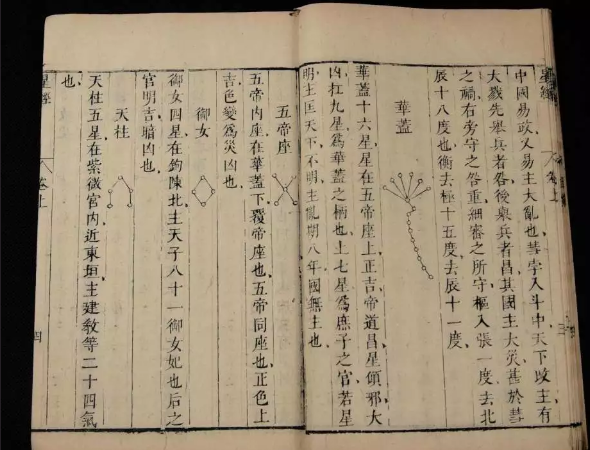 星經 卷上 三
中國易政又易主大亂也彗孛入斗中天下改主有
大戮先舉兵者咎後舉兵者昌其國主大災甚於彗
之禍右旁守之咎重細審之所守樞入張一度去北
辰十八度也衡去極十五度去辰十一度
華蓋
華蓋十六星星在五帝座上正吉帝道昌星傾邪大
凶杠九星爲華蓋之柄也上七星爲庶子之官若星
明主匡天下不明主亂期八年國無主也
五帝座
五帝內座在華蓋下覆帝座也五帝同座也正色上
吉色變爲災凶也
御女
御女四星在鉤陳北主天子八十一御女妃也后之
官明吉暗凶也
天柱
天柱五星在紫微宮內近東垣主建教等二十四氣
也
星經 卷上 四